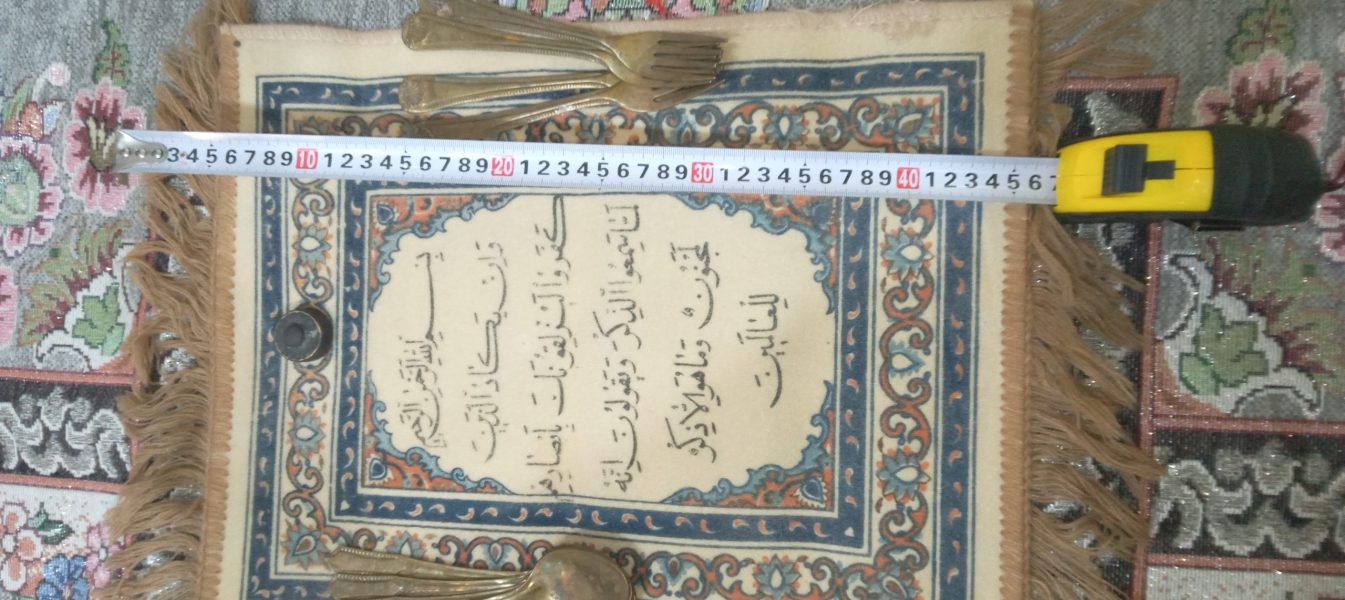 3 4 5 6 7 8 9 10 1 2 3 4 5 6 7 8 9 20 1 2 3 4 5 6 7 8 9 30 1 2 3 4 5 6 7 8 9 40 1 2 3 4 5 6 7
بسم الله الرحمن الرحیم
وان یکاد الذین
کفروا لیزلقونک بابصارهم
لما سمعوا الذکر ویقولون انه
لمجنون وما هو الا ذکر
للعالمین